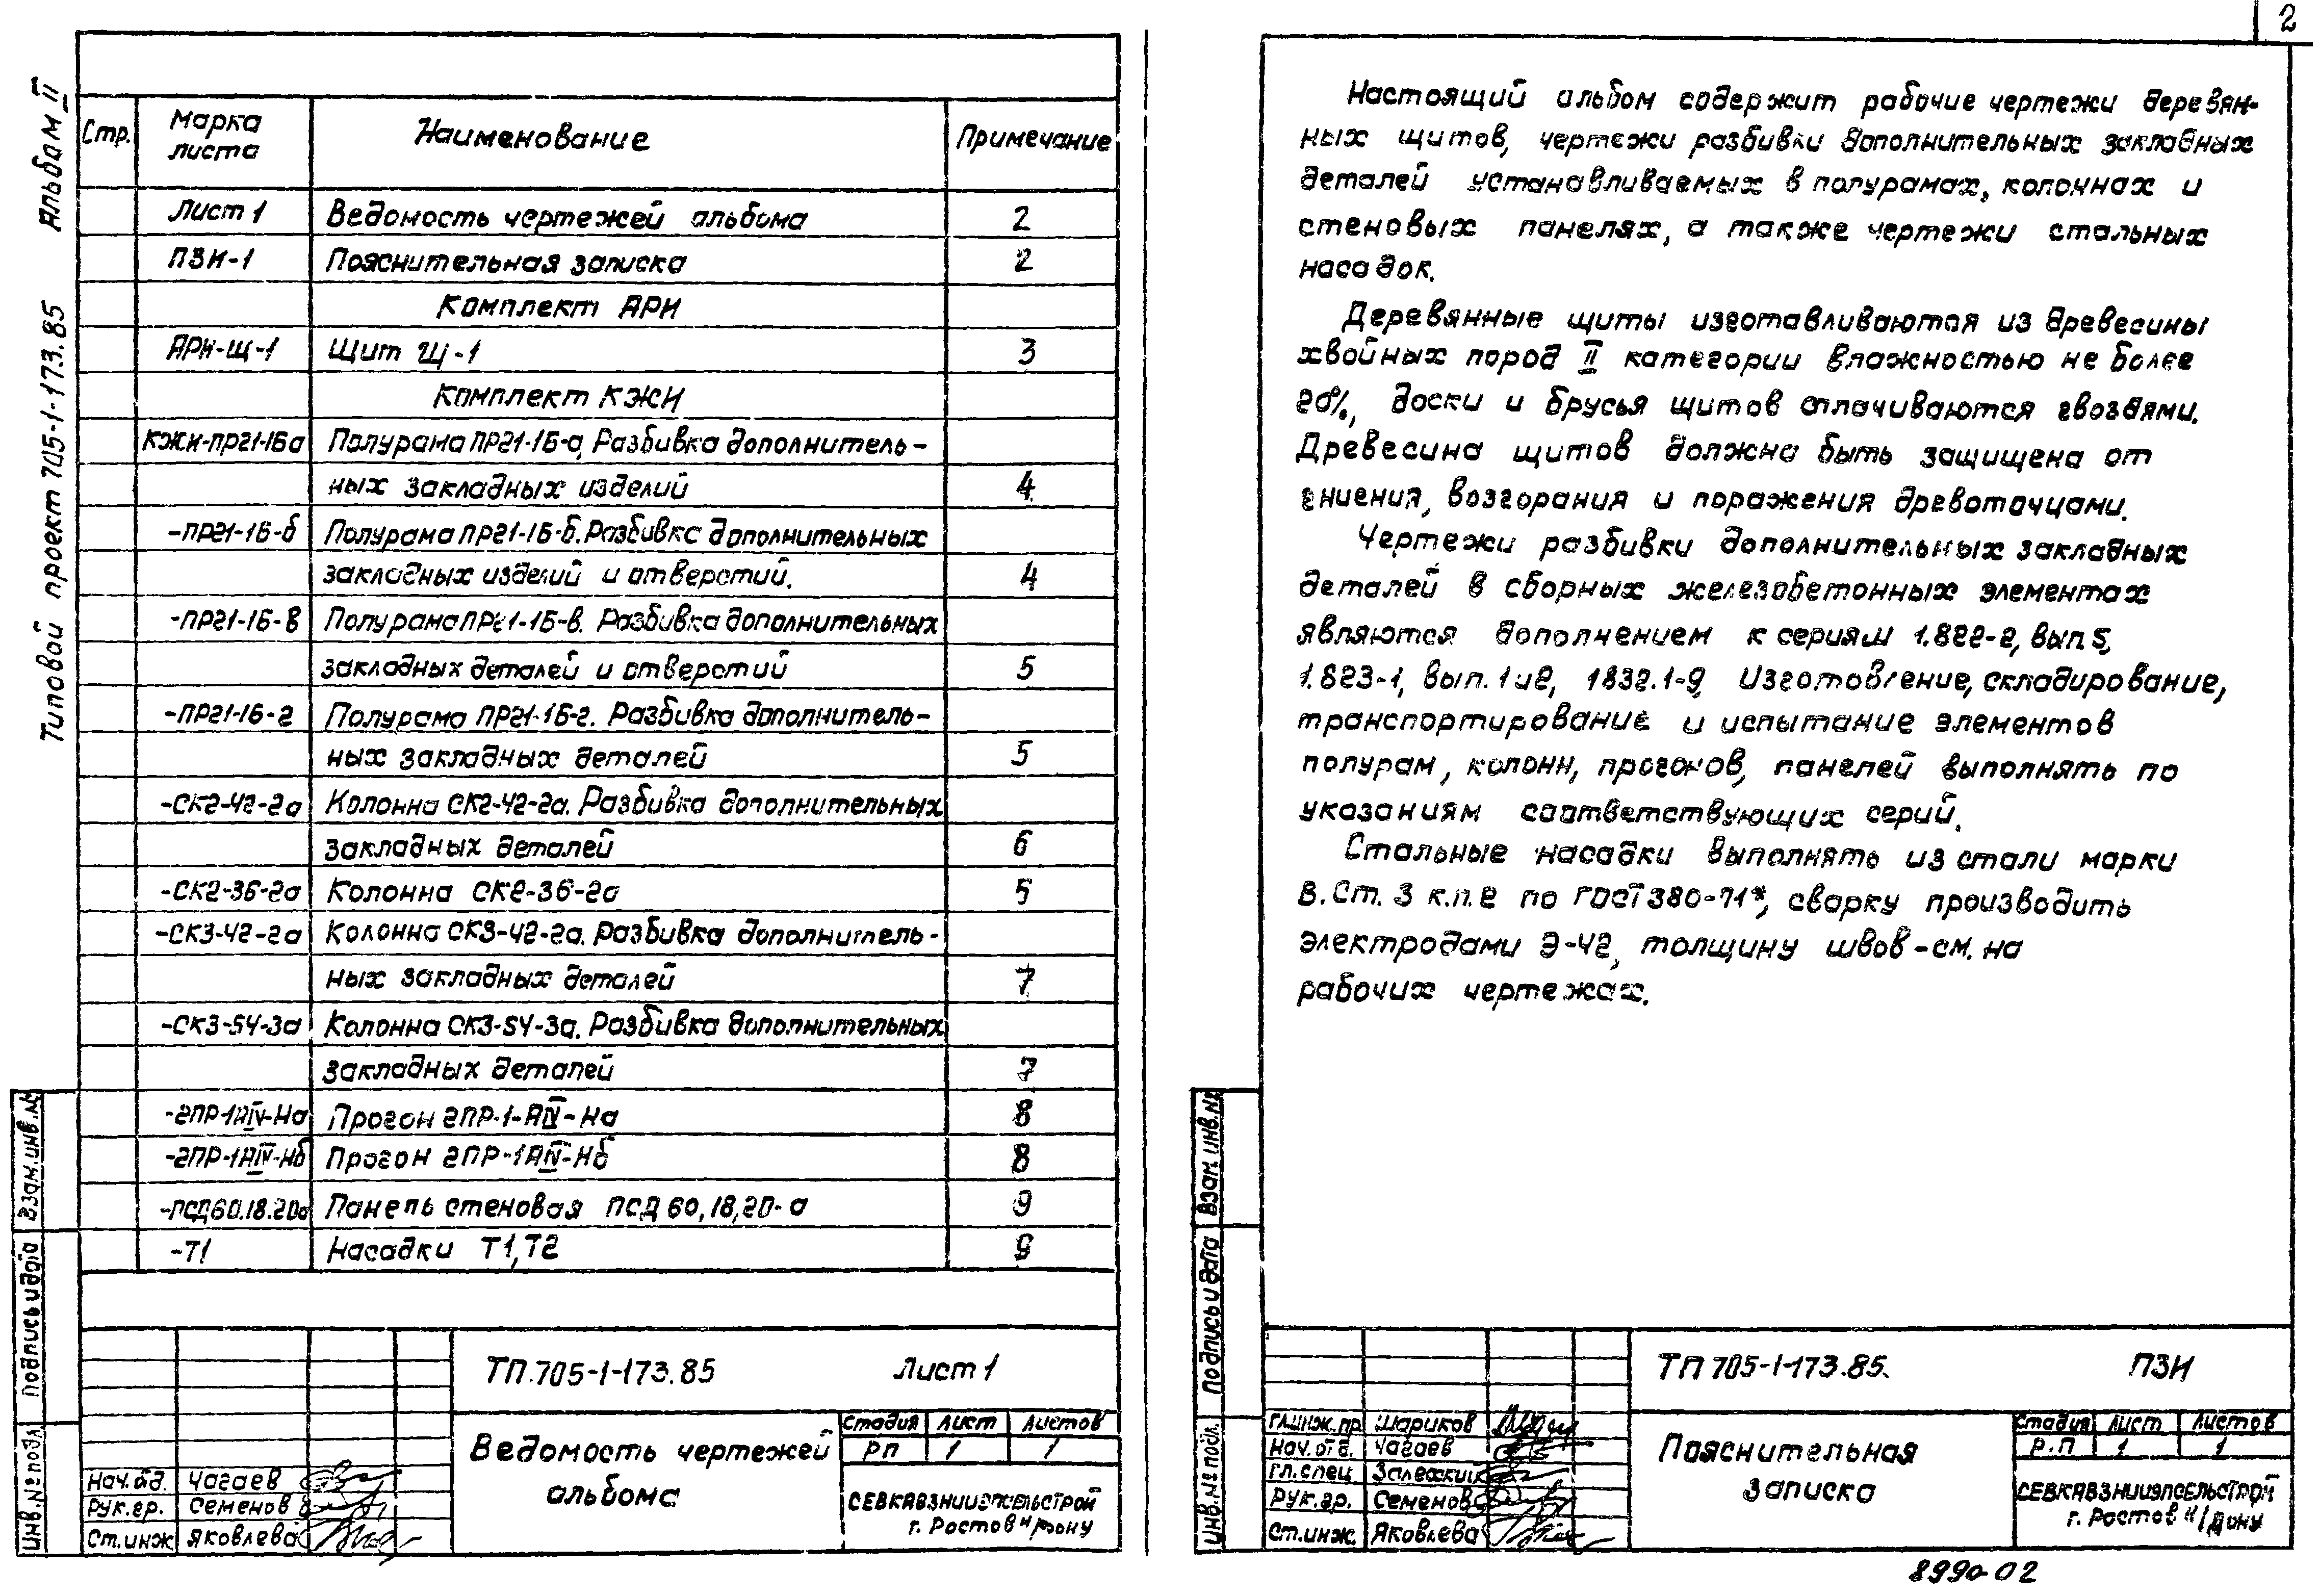 2
Альбом II
Типовой проект 705-1-173.85
Стр. Марка листа Наименование Примечание
Лист 1 Ведомость чертежей альбома 2
ПЗИ-1 Пояснительная записка 2
Комплект АРИ
АРИ-Щ-1 Щит Щ-1 3
Комплект КЖИ
КЖИ-ПР21-1Б а Полурама ПР21-1Б-а, Разбивка дополнитель-
ных закладных изделий 4
-ПР21-1Б-б Полурама ПР21-1Б-б. Разбивка дополнительных
закладных изделий и отверстий. 4
-ПР21-1Б-в Полурама ПР21-1Б-в. Разбивка дополнительных
закладных деталей и отверстий 5
-ПР21-1Б-г Полурама ПР21-1Б-г. Разбивка дополнитель-
ных закладных деталей 5
-СК2-42-2а Колонна СК2-42-2а. Разбивка дополнительных
закладных деталей 6
-СК2-36-2а Колонна СК2-36-2а 5
-СК3-42-2а Колонна СК3-42-2а. Разбивка дополнитель-
ных закладных деталей 7
-СК3-54-3а Колонна СК3-54-3а. Разбивка дополнительных
закладных деталей 7
-2ПР-1АIV-На Прогон 2ПР-1-АIV-На 8
-2ПР-1АIV-Нб Прогон 2ПР-1АIV-Нб 8
-ПСД60.18.20а Панель стеновая ПСД 60,18,20-а 9
-Т1 Насадки Т1,Т2 9
Взам.инв.№
Подпись и дата
Инв.№ подл.
ТП.705-1-173.85 Лист 1
Ведомость чертежей
альбома
Стадия Лист Листов
РП 1 1
Нач.од. Чагаев
Рук.гр. Семенов
Ст.инж Яковлева
СЕВКАВЗНИИЭПСЕЛЬСТРОЙ
г. Ростов н/Дону
Настоящий альбом содержит рабочие чертежи деревян-
ных щитов, чертежи разбивки дополнительных закладных
деталей устанавливаемых в полурамах, колоннах и
стеновых панелях, а также чертежи стальных
насадок.
Деревянные щиты изготавливаются из древесины
хвойных пород II категории влажностью не более
20%, доски и брусья щитов сплачиваются гвоздями.
Древесина щитов должна быть защищена от
гниения, возгорания и поражения древоточцами.
Чертежи разбивки дополнительных закладных
деталей в сборных железобетонных элементах
являются дополнением к сериям 1.822-2, вып 5,
1.823-1, вып. 1 и 2, 1832.1-9, Изготовление, складирование,
транспортирование и испытание элементов
полурам, колонн, прогонов, панелей выполнять по
указаниям соответствующих серий.
Стальные насадки выполнять из стали марки
В.Ст. 3 к.п. 2 по ГОСТ 380-71*, сварку производить
электродами Э-42, толщину швов-см. на
рабочих чертежах.
Взам инв.№
Подпись и дата
Инв.№ подл.
ТП 705-1-173.85. ПЗИ
Гл.инж.пр Шариков
Нач.отд. Чагаев
Гл.спец Залеский
Рук.гр. Семенов
Ст.инж. Яковлева
Пояснительная
записка
Стадия Лист Листов
Р.П 1 1
СЕВКАВЗНИИЭПСЕЛЬСТРОЙ
г. Ростов н/Дону
8990-02